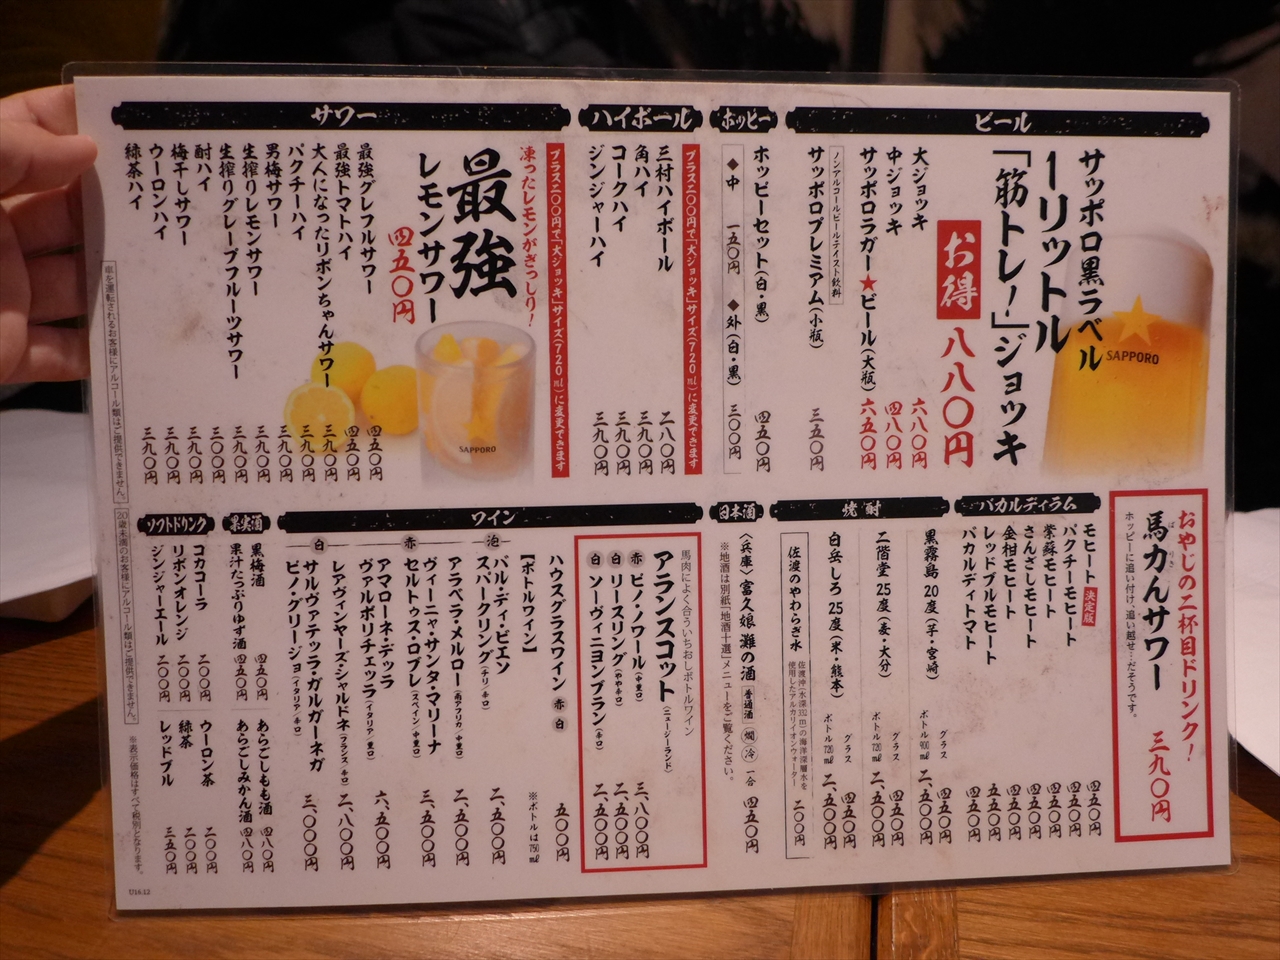 ビール
サッポロ黒ラベル
1リットル
「筋トレ!」ジョッキ
お得 八八〇円
SAPPORO
大ジョッキ 六八〇円
中ジョッキ 四八〇円
サッポロラガー★ビール(大瓶) 六五〇円
ノンアルコールビールテイスト飲料
サッポロプレミアム(小瓶) 三五〇円
ホッピー
ホッピーセット(白・黒) 四五〇円
◆中 一五〇円 ◆外(白・黒) 三〇〇円
ハイボール
プラス二〇〇円で「大ジョッキ」サイズ(720㎖)に変更できます
三村ハイボール 二八〇円
角ハイ 三九〇円
コークハイ 三九〇円
ジンジャーハイ 三九〇円
サワー
プラス二〇〇円で「大ジョッキ」サイズ(720㎖)に変更できます
凍ったレモンがぎっしり!
最強
レモンサワー
四五〇円
SAPPORO
最強グレフルサワー 四五〇円
最強トマトハイ 四五〇円
大人になったリボンちゃんサワー 三九〇円
パクチーハイ 三九〇円
男梅サワー 三九〇円
生搾りレモンサワー 三九〇円
生搾りグレープフルーツサワー 三九〇円
酎ハイ 三〇〇円
梅干しサワー 三九〇円
ウーロンハイ 三九〇円
緑茶ハイ 三九〇円
おやじの二杯目ドリンク!
ホッピーに追い付け、追い越せ…だそうです。
馬力んサワー
ばりき
三九〇円
バカルディラム
モヒート 決定版 四五〇円
パクチーモヒート 四五〇円
紫蘇モヒート 四五〇円
さんざしモヒート 四五〇円
金柑モヒート 四五〇円
レッドブルモヒート 四五〇円
バカルディトマト 四五〇円
焼酎
黒霧島 20度(芋・宮崎) グラス 四五〇円
ボトル900㎖ 二、五〇〇円
二階堂 25度(麦・大分) グラス 四五〇円
ボトル720㎖ 二、五〇〇円
白岳しろ 25度(米・熊本) グラス 四五〇円
ボトル720㎖ 二、五〇〇円
佐渡のやわらぎ水 佐渡沖(水深332m)の海洋深層水を使用したアルカリイオンウォーター 二〇〇円
日本酒
〈兵庫〉富久娘 灘の酒 普通酒 燗 冷 一合 四五〇円
※地酒は別紙「地酒十選」メニューをご覧ください。
ワイン
馬肉によく合ううちおしボトルワイン
アランスコット(ニュージーランド)
赤 ピノ・ノワール(中重口) 三、八〇〇円
白 リースリング(やや辛口) 二、五〇〇円
白 ソーヴィニヨンブラン(辛口) 二、五〇〇円
ハウスグラスワイン 赤 白 五〇〇円
【ボトルワイン】 ※ボトルは750㎖
泡
バル・ディ・ビエン
スパークリング(チリ/辛口) 二、五〇〇円
赤
アラベラ・メルロー(南アフリカ/中重口) 二、五〇〇円
ヴィーニャ・サンタ・マリーナ
セルトゥス・ロブレ(スペイン/中重口) 三、五〇〇円
アマローネ・デッラ
ヴァルポリチェッラ(イタリア/重口) 六、五〇〇円
白
レアヴィンヤーズ・シャルドネ(フランス/辛口) 二、八〇〇円
サルヴァテッラ・ガルガーネガ
ピノ・グリージョ(イタリア/辛口) 三、〇〇〇円
果実酒
黒梅酒 四五〇円
果汁たっぷりゆず酒 四五〇円
あらごしもも酒 四八〇円
あらごしみかん酒 四八〇円
ソフトドリンク
コカコーラ 二〇〇円
リボンオレンジ 二〇〇円
ジンジャーエール 二〇〇円
ウーロン茶 二〇〇円
緑茶 二〇〇円
レッドブル 三五〇円
車を運転されるお客様にアルコール類はご提供できません。
20歳未満のお客様にアルコール類はご提供できません。
※表示価格はすべて税別となります。
U16.12